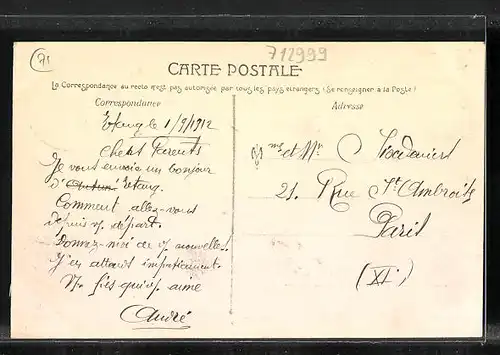 71
712999
CARTE POSTALE
La Correspondance au recto n'est pas autorisée par tous les pays étrangers (Se renseigner à la Poste)
Correspondance
Adresse
Etang le 1/9/1912
chers Parents
Je vous envoie un bonjour
d' Etang.
Comment allez-vous
depuis v/ départ.
Donnez-moi de v/ nouvelles
J'en attends impatiemment.
Vo fils qui v/ aime
André
Mme et Mr
21. Rue St Ambroise
Paris
(XI)